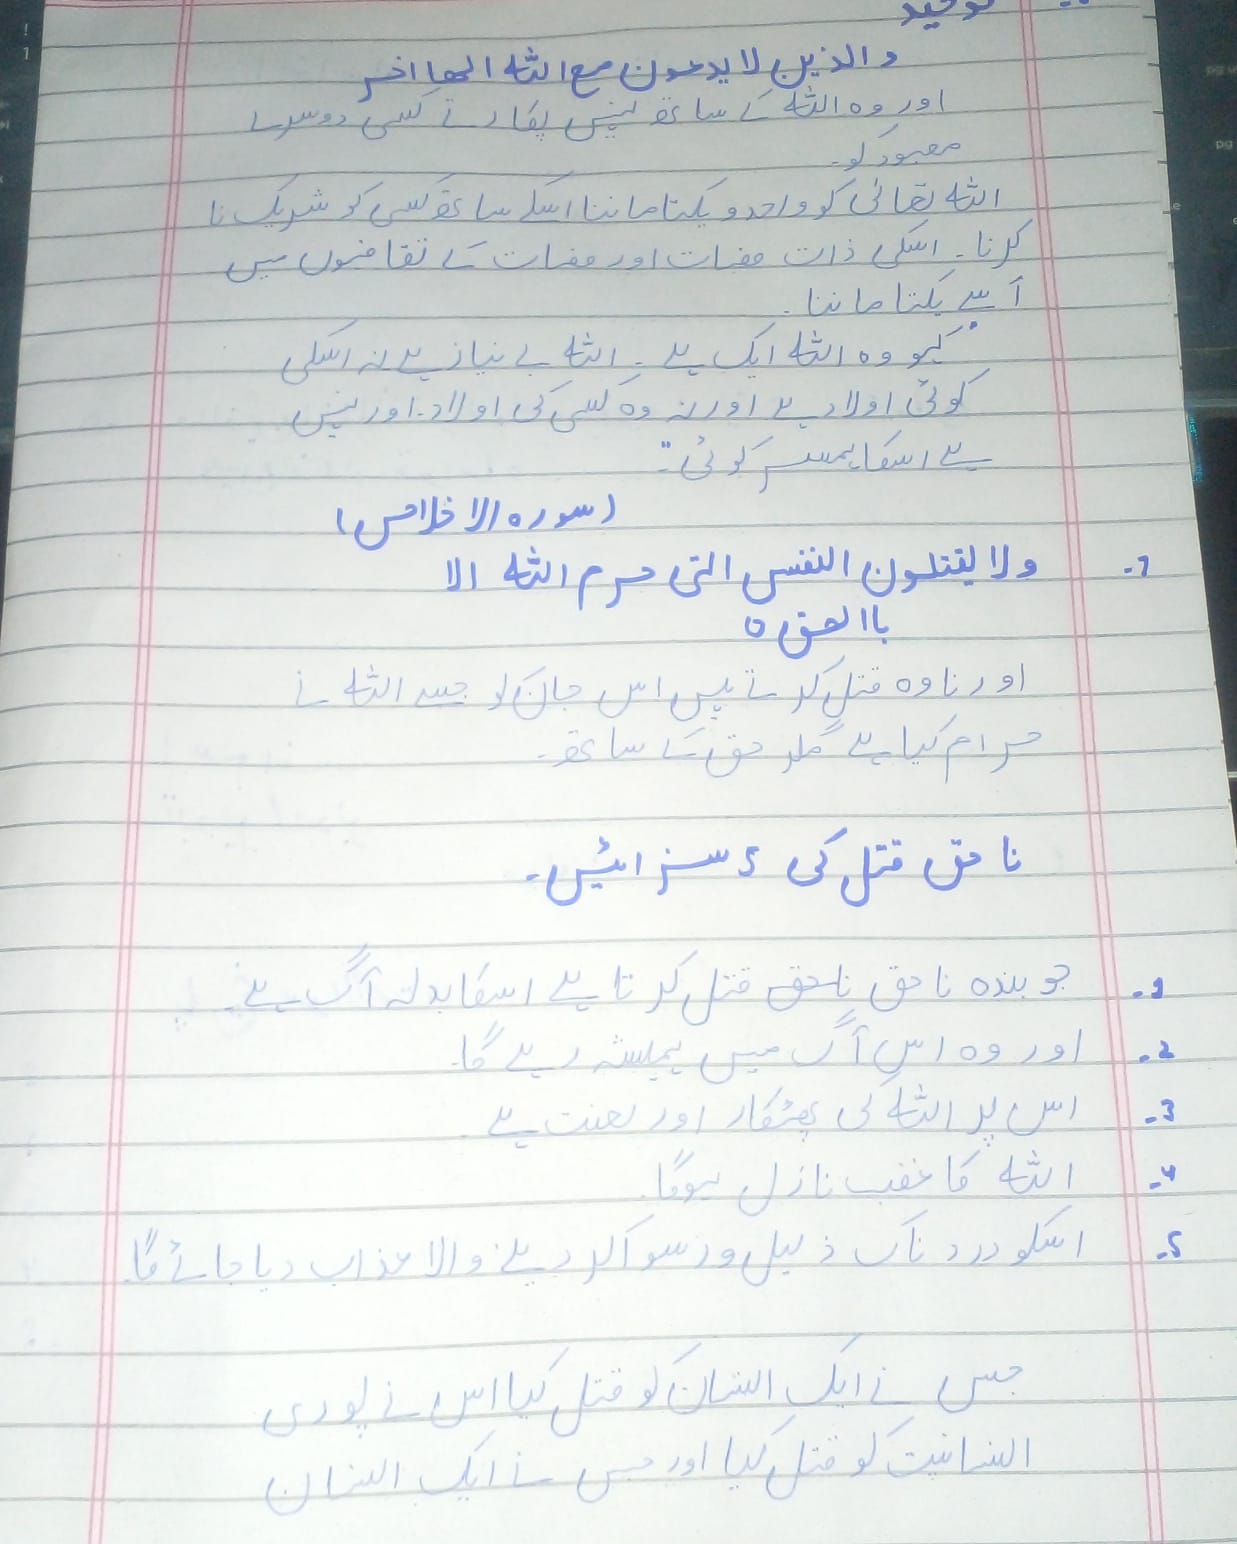 توحید
والذین لا یدعون مع اللہ الھا اخر
اور وہ اللہ کے ساتھ نہیں پکارتے کسی دوسرے
معبود کو۔
اللہ تعالیٰ کو واحد و یکتا ماننا اسکے ساتھ کسی کو شریک نا
کرنا۔ اسکی ذات صفات اور صفات کے تقاضوں میں
اُسے یکتا ماننا۔
"کہو وہ اللہ ایک ہے۔ اللہ بے نیاز ہے نہ اسکی
کوئی اولاد ہے اور نہ وہ کسی کی اولاد۔ اور نہیں
ہے اسکا ہمسر کوئی"۔
(سورہ الاخلاص)
7- ولا یقتلون النفس التی حرم اللہ الا
باالحق o
اور نا وہ قتل کرتے ہیں اس جان کو جسے اللہ نے
حرام کیا ہے مگر حق کے ساتھ۔
نا حق قتل کی 5 سزائیں۔
1- جو بندہ نا حق ناحق قتل کرتا ہے اسکا بدلہ آگ ہے۔
2- اور وہ اس آگ میں ہمیشہ رہے گا۔
3- اس پر اللہ کی پھٹکار اور لعنت ہے۔
4- اللہ کا غضب نازل ہوگا۔
5- اسکو دردناک ذلیل و رسوا کر دینے والا عذاب دیا جائے گا۔
جس نے ایک انسان کو قتل کیا اس نے پوری
انسانیت کو قتل کیا اور جس نے ایک انسان